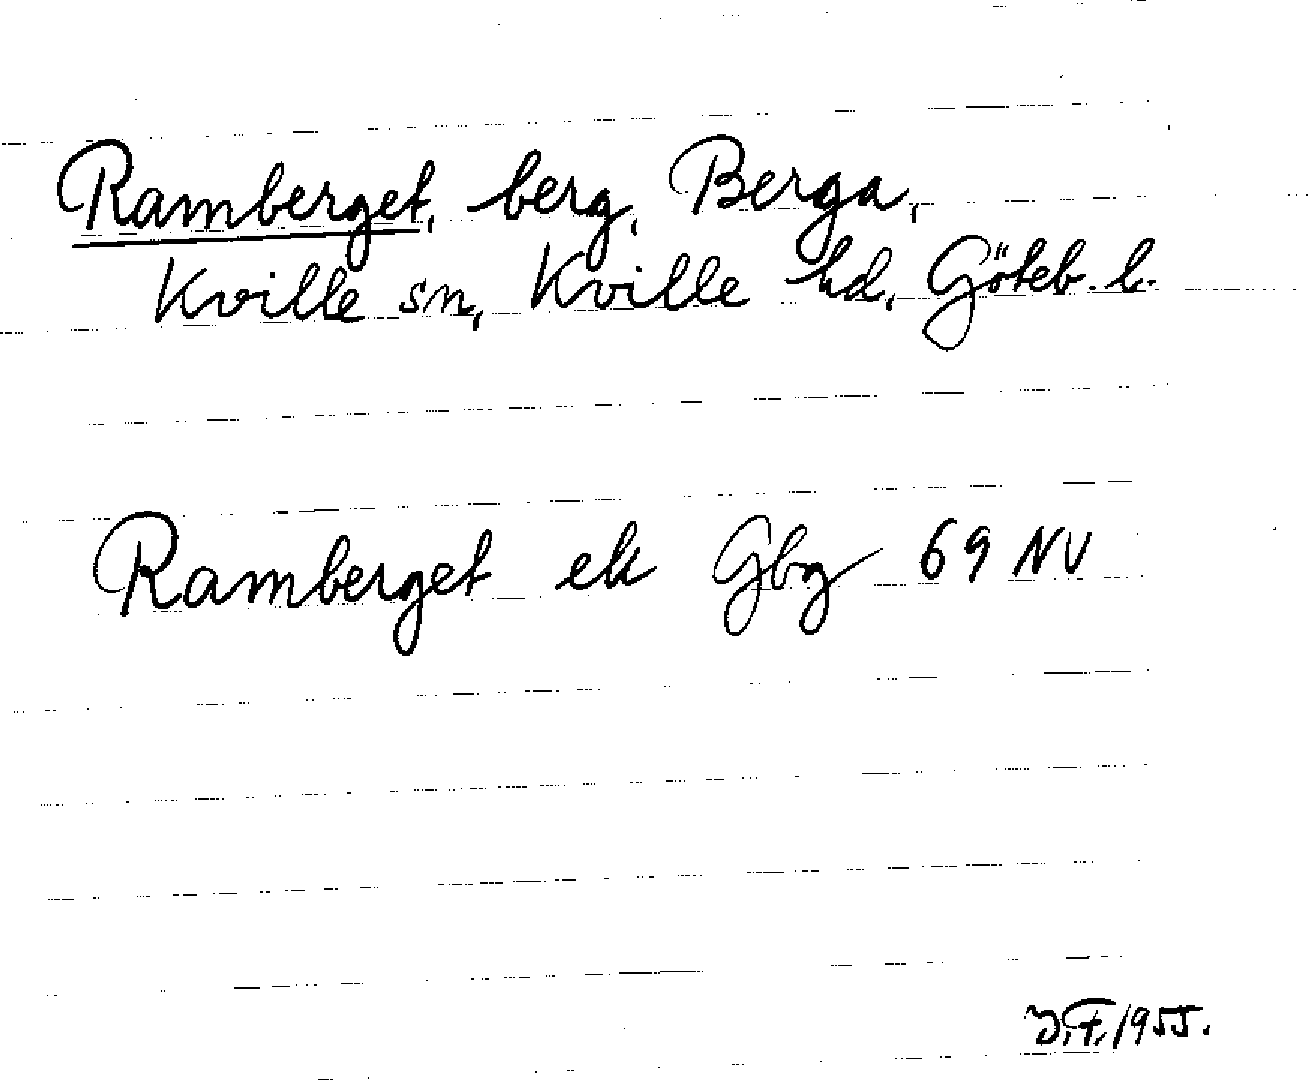 Ramberget, berg, Berga,
Kville sn, Kville hd, Göteb. l.
Ramberget ek Gbg 69 NV
J.F. 1955.